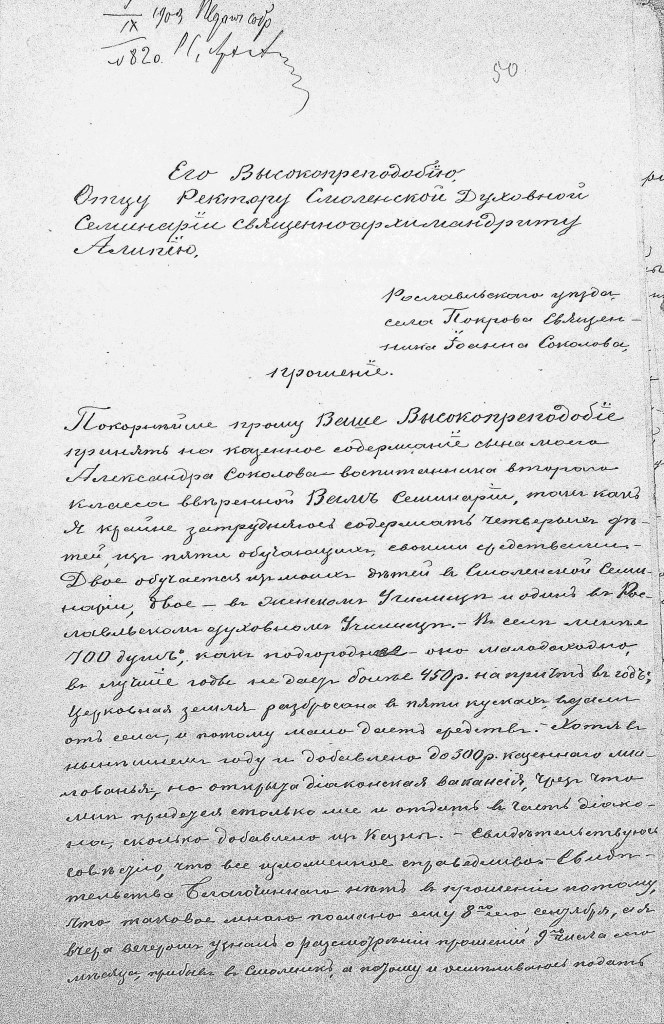 IX 1903
№ 820.
50
Его Высокопреподобію,
Отцу Ректору Смоленской Духовной
Семинаріи священноархимандриту
Алипію,
Рославльскаго уѣзда,
села Покрова Священ-
ника Іоанна Соколова,
прошеніе.
Покорнѣйше прошу Ваше Высокопреподобіе
принять на казенное содержаніе сына моего
Александра Соколова – воспитанника второго
класса ввѣренной Вамъ Семинаріи, такъ какъ
я крайне затрудняюсь содержать четверыхъ дѣ-
тей, изъ пяти обучающихъ, своими средствами. –
Двое обучается изъ моихъ дѣтей въ Смоленской Семи-
наріи, двое – въ женскомъ Училищѣ и одинъ въ Рос-
лавльскомъ духовномъ Училищѣ. – Въ селѣ менѣе
700 душъ; какъ подгородное – оно малодоходно,
въ лучшіе годы не даетъ болѣе 450 р. на причтъ въ годъ;
церковная земля разбросана въ пяти кускахъ вдали
отъ села, и потому мало даетъ средствъ. – Хотя въ
нынѣшнемъ году и добавлено до 300 р. казеннаго жа-
лованья, но открыта діаконская вакансія, чрезъ что
мнѣ придется столько же и отдать въ часть діако-
на, сколько добавлено изъ Казны. – Свидѣтельствуюсь
совѣстію, что все изложенное справедливо. – Свидѣ-
тельства Благочиннаго нѣтъ въ прошеніи потому,
что таковое мною послано ему 8го сего сентября, а я
вчера вечеромъ узналъ о разсмотрѣніи прошеній 9го числа сего
мѣсяца, прибывъ въ Смоленскъ, а потому и осмѣливаюсь подать